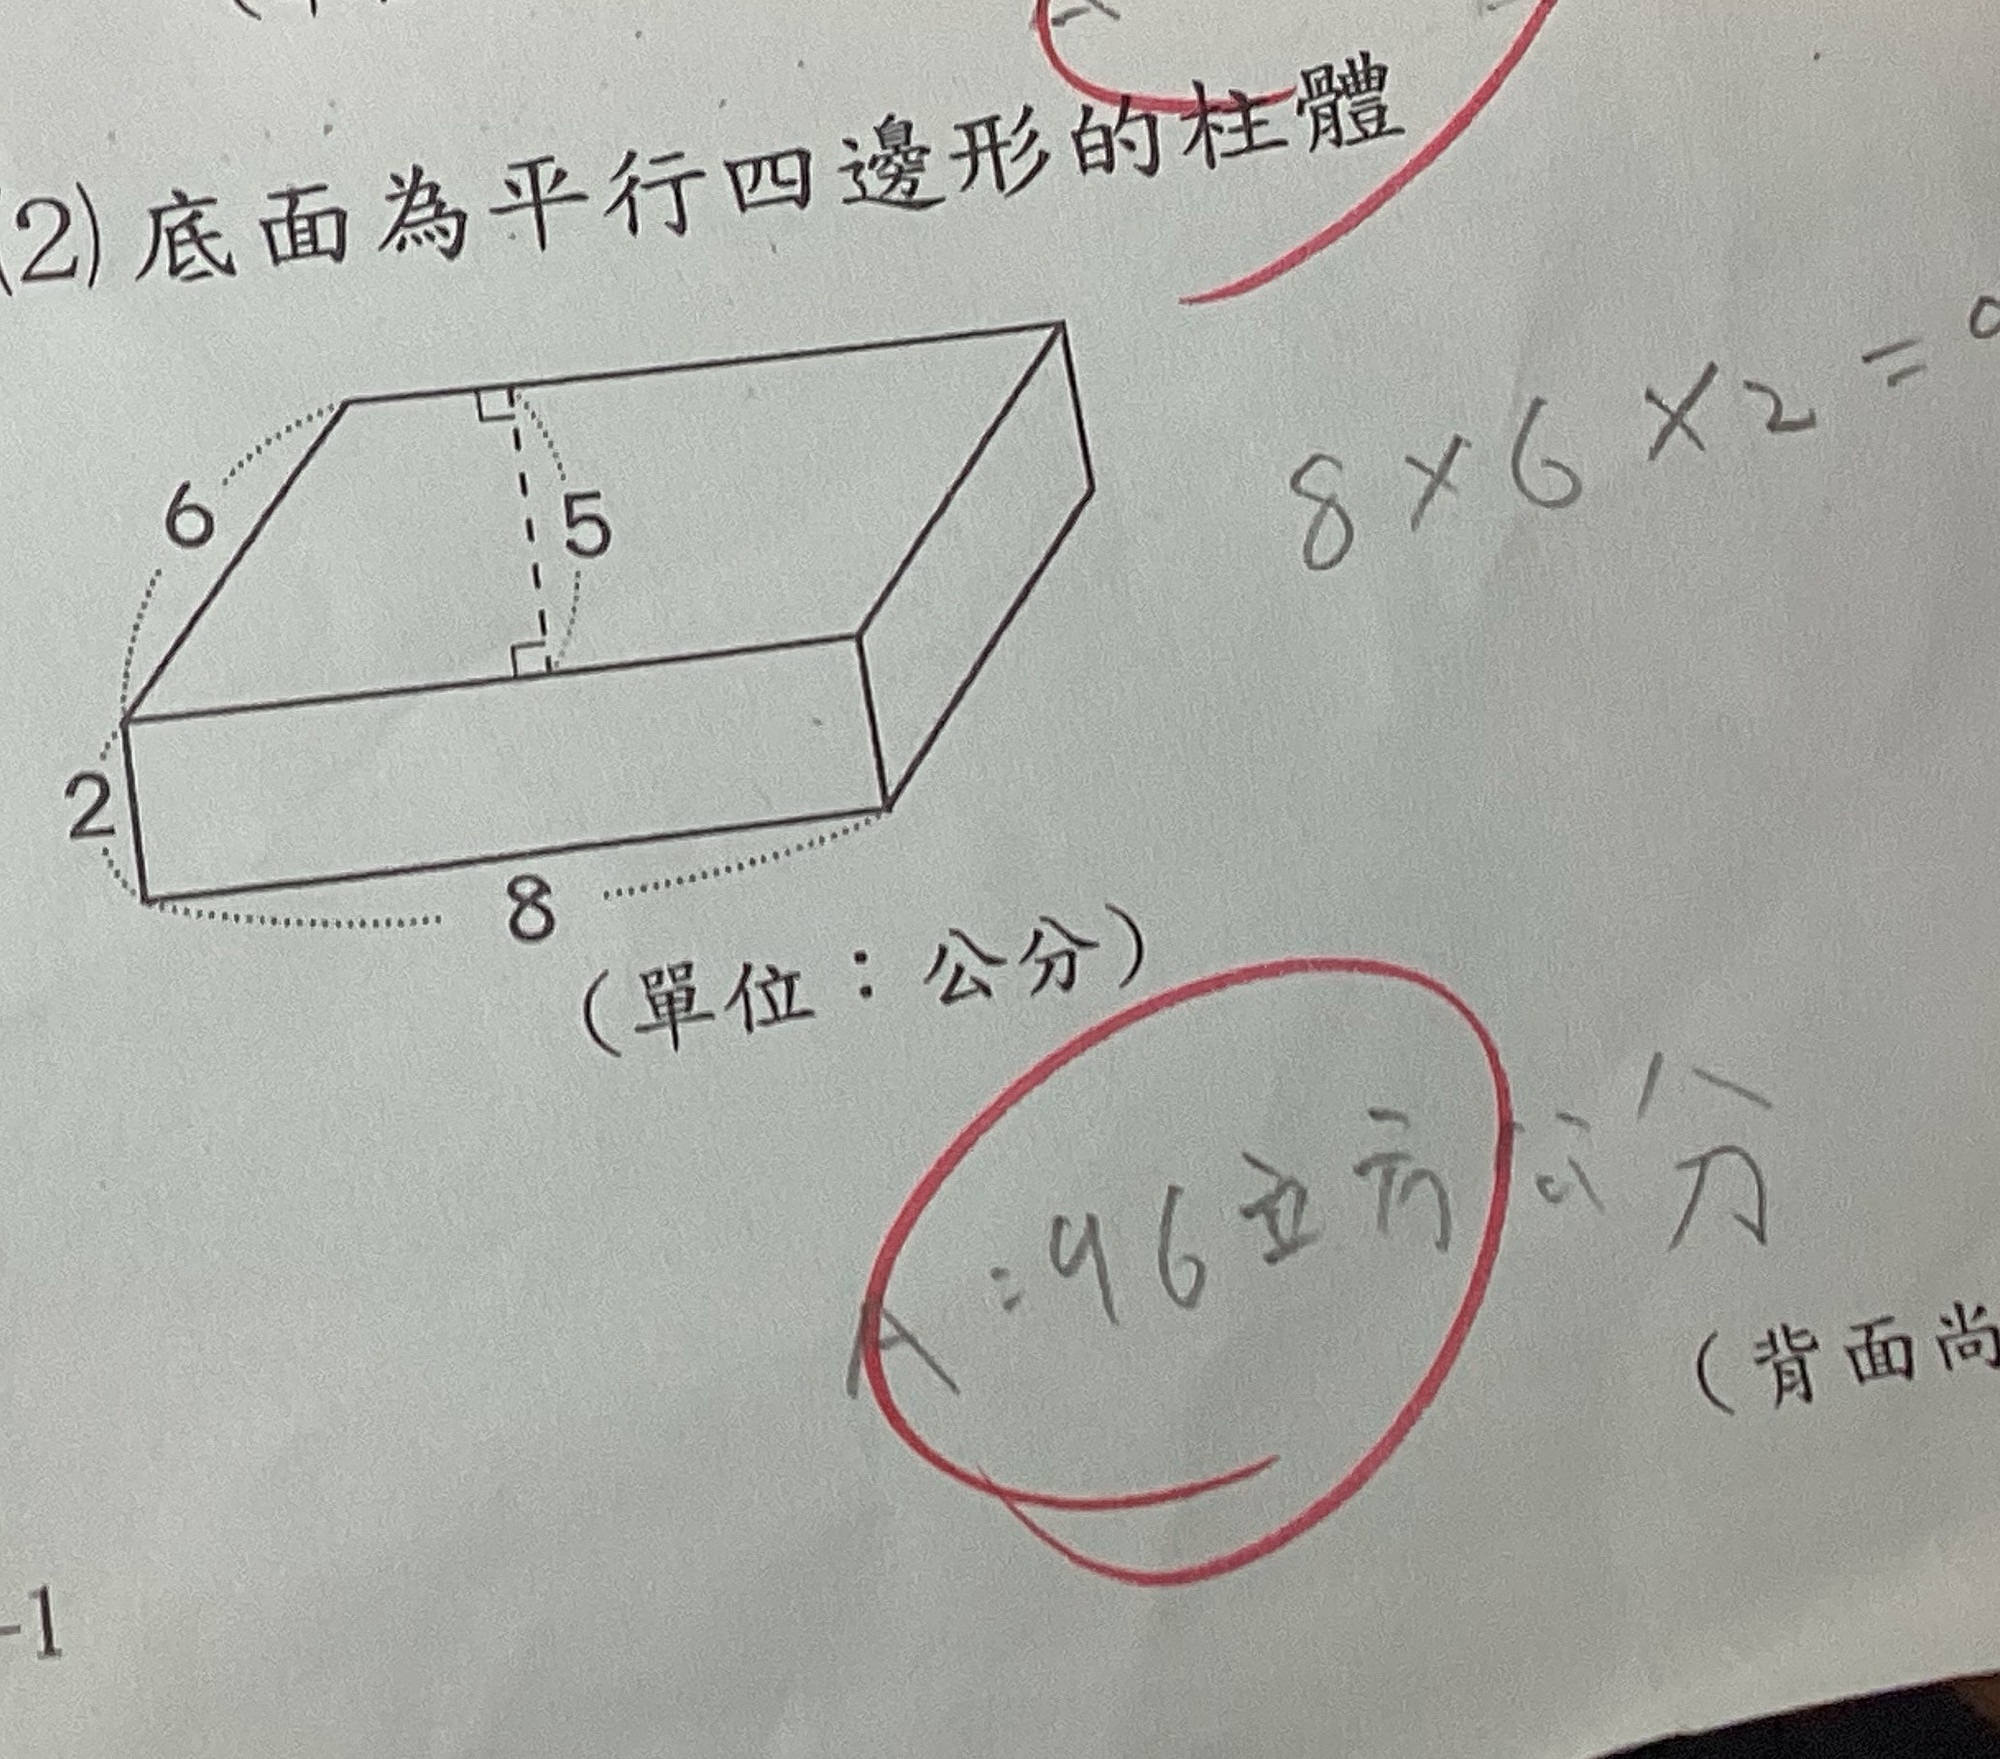 (2) 底面為平行四邊形的柱體
8×6×2=
6
5
2
8
(單位：公分)
A:96立方公分
(背面尚
-1